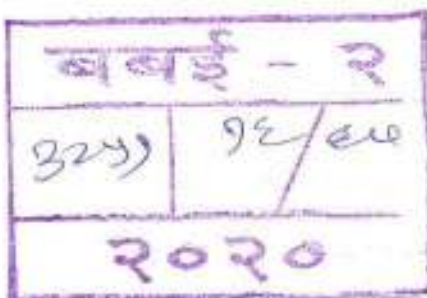 बबई - २
३२५१ १६/
२०२०